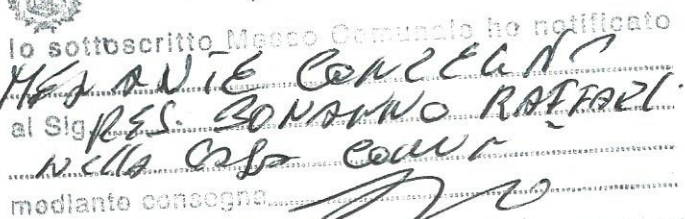 Io sottoscritto Messo Comunale ho notificato
MEDIANTE CONSEGNA
al Sig. PRES. BONANNO RAFFAEL.
NELLA CASA COMUN
mediante consegna